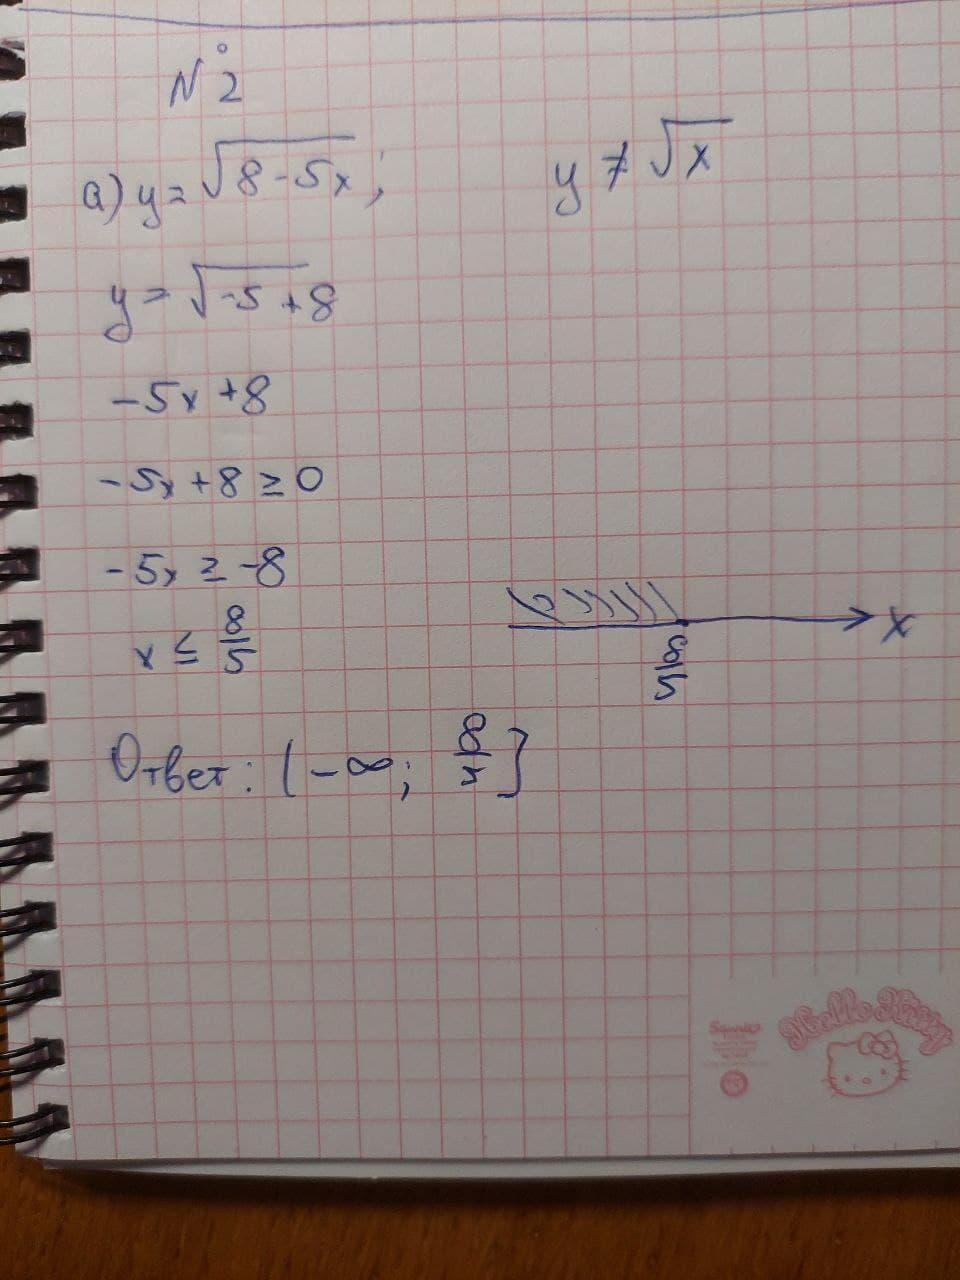 N°2
а) y = √8 - 5x ;
y ≠ √x
y = √-5 + 8
-5x + 8
-5x + 8 ≥ 0
-5x ≥ -8
x ≤ 8/5
x
8/5
Ответ: (-∞; 8/5]
Sanrio
Hello Kitty